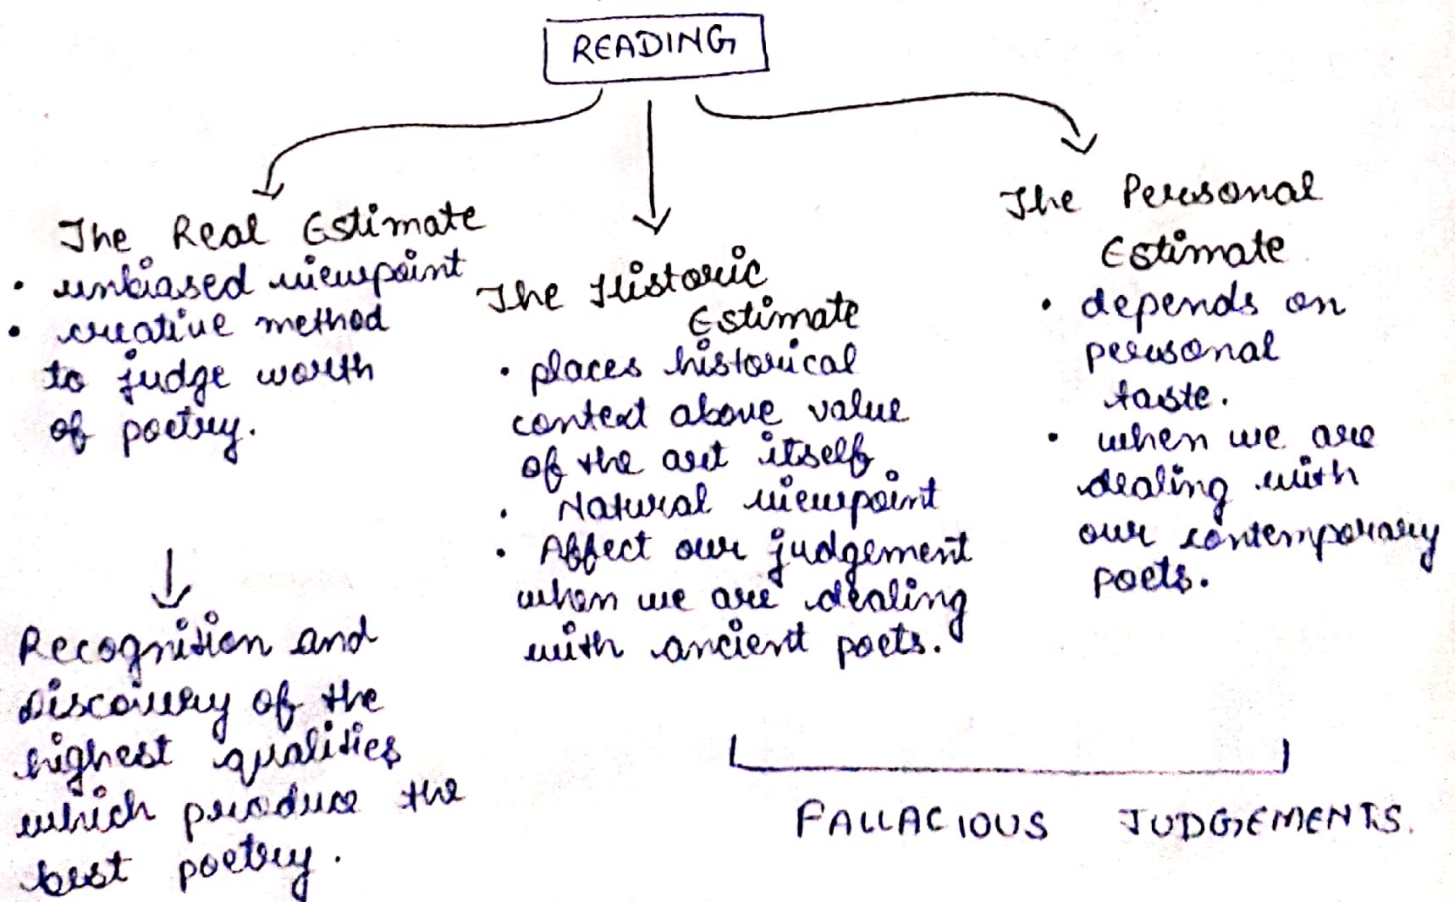 READING
The Real Estimate
• unbiased viewpoint
• creative method
to judge worth
of poetry.
Recognition and
Discovery of the
highest qualities
which produce the
best poetry.
The Historic
Estimate
• places historical
context above value
of the art itself
• Natural viewpoint
• Affect our judgement
when we are dealing
with ancient poets.
The Personal
Estimate
• depends on
personal
taste.
• when we are
dealing with
our contemporary
poets.
FALLACIOUS JUDGEMENTS.